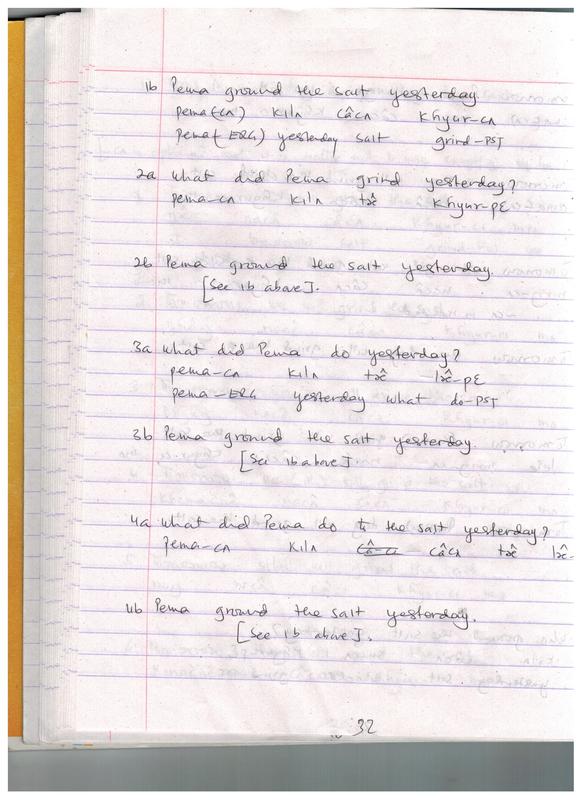 1b Pema ground the salt yesterday.
pema(-cʌ) kilʌ câcʌ khyur-cʌ
pema(-ERG) yesterday salt grind-PST
2a What did Pema grind yesterday?
pema-cʌ kilʌ khyur-pɛ
2b Pema ground the salt yesterday.
[See 1b above].
3a What did Pema do yesterday?
pema-cʌ kilʌ
pema-ERG yesterday what do-PST
3b Pema ground the salt yesterday.
[See 1b above].
4a What did Pema do to the salt yesterday?
pema-cʌ kilʌ câcʌ
4b Pema ground the salt yesterday.
[See 1b above].
32